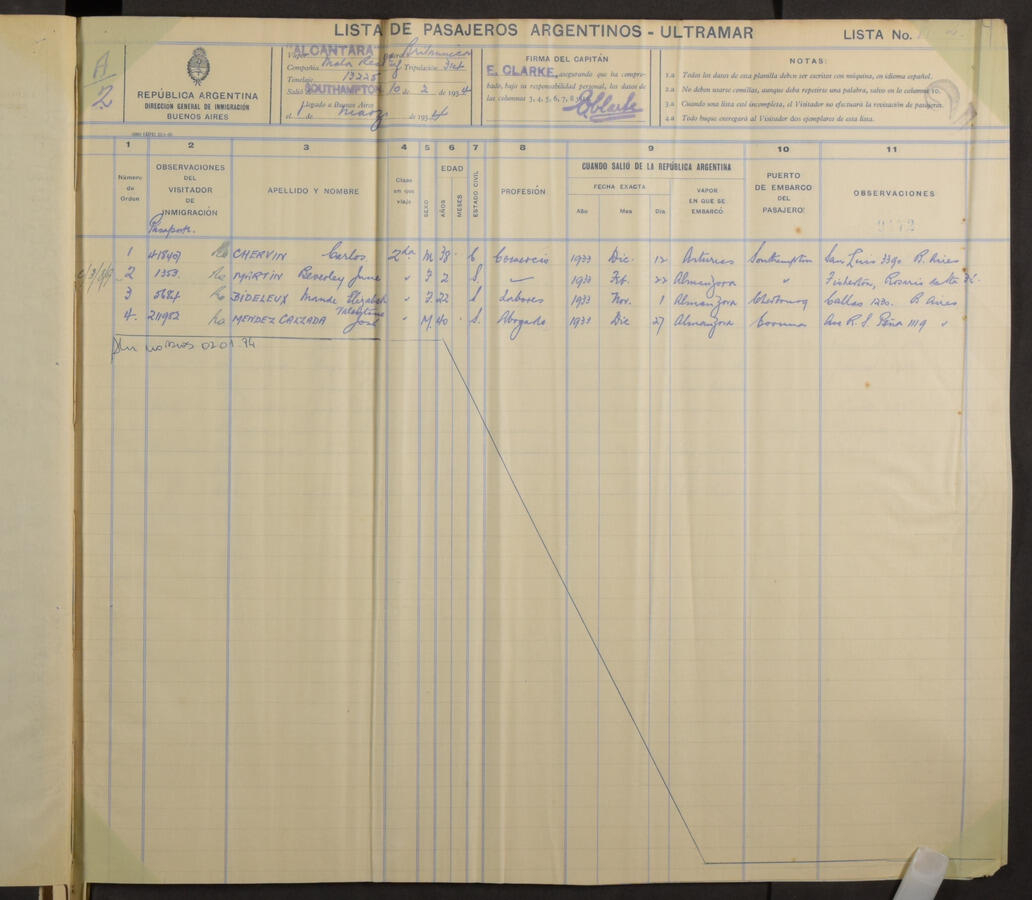 LISTA DE PASAJEROS ARGENTINOS - ULTRAMAR
LISTA No.
A/2
REPÚBLICA ARGENTINA
DIRECCIÓN GENERAL DE INMIGRACIÓN
BUENOS AIRES
Vapor "ALCANTARA" Britannica
Compañía Mala Real Tripulación
Tonelaje 13225
Salió SOUTHAMPTON 10 de 2 de 1934
Llegado a Buenos Aires
el 1 de Marzo de 1934
FIRMA DEL CAPITÁN
E. CLARKE, asegurando que ha compro-
bado, bajo su responsabilidad personal, los datos de
las columnas 3, 4, 5, 6, 7, 8
NOTAS:
1.a Todos los datos de esta planilla deben ser escritos con máquina, en idioma español.
2.a No deben usarse comillas, aunque deba repetirse una palabra, salvo en la columna 10.
3.a Cuando una lista esté incompleta, el Visitador no efectuará la revisación de pasajeros.
4.a Todo buque entregará al Visitador dos ejemplares de esta lista.
1 2 3 4 5 6 7 8 9 10 11
Número de Orden
OBSERVACIONES DEL VISITADOR DE INMIGRACIÓN
Pasaporte.
APELLIDO Y NOMBRE
Clase en que viaja
SEXO
EDAD
AÑOS
MESES
ESTADO CIVIL
PROFESIÓN
CUANDO SALIÓ DE LA REPÚBLICA ARGENTINA
FECHA EXACTA
Año Mes Día
VAPOR EN QUE SE EMBARCÓ
PUERTO DE EMBARCO DEL PASAJERO
OBSERVACIONES
1 41840 CHERVIN Carlos 2da. M 38 C Comercio 1933 Dic. 12 Asturias Southampton San Luis 3390 B. Aires
2 1353 MARTIN Beverley June " F 2 S. — 1933 Feb. 22 Almanzora " Fisherton, Rosario
3 5684 BIDELEUX Maude Elizabeth " F 22 S Labores 1933 Nov. 1 Almanzora Cherbourg Callao 1230. B Aires
4. 211982 MENDEZ CALZADA José " M 40 S. Abogado 1933 Dic 27 Almanzora Coruna Ave R. S. Peña 1119 "